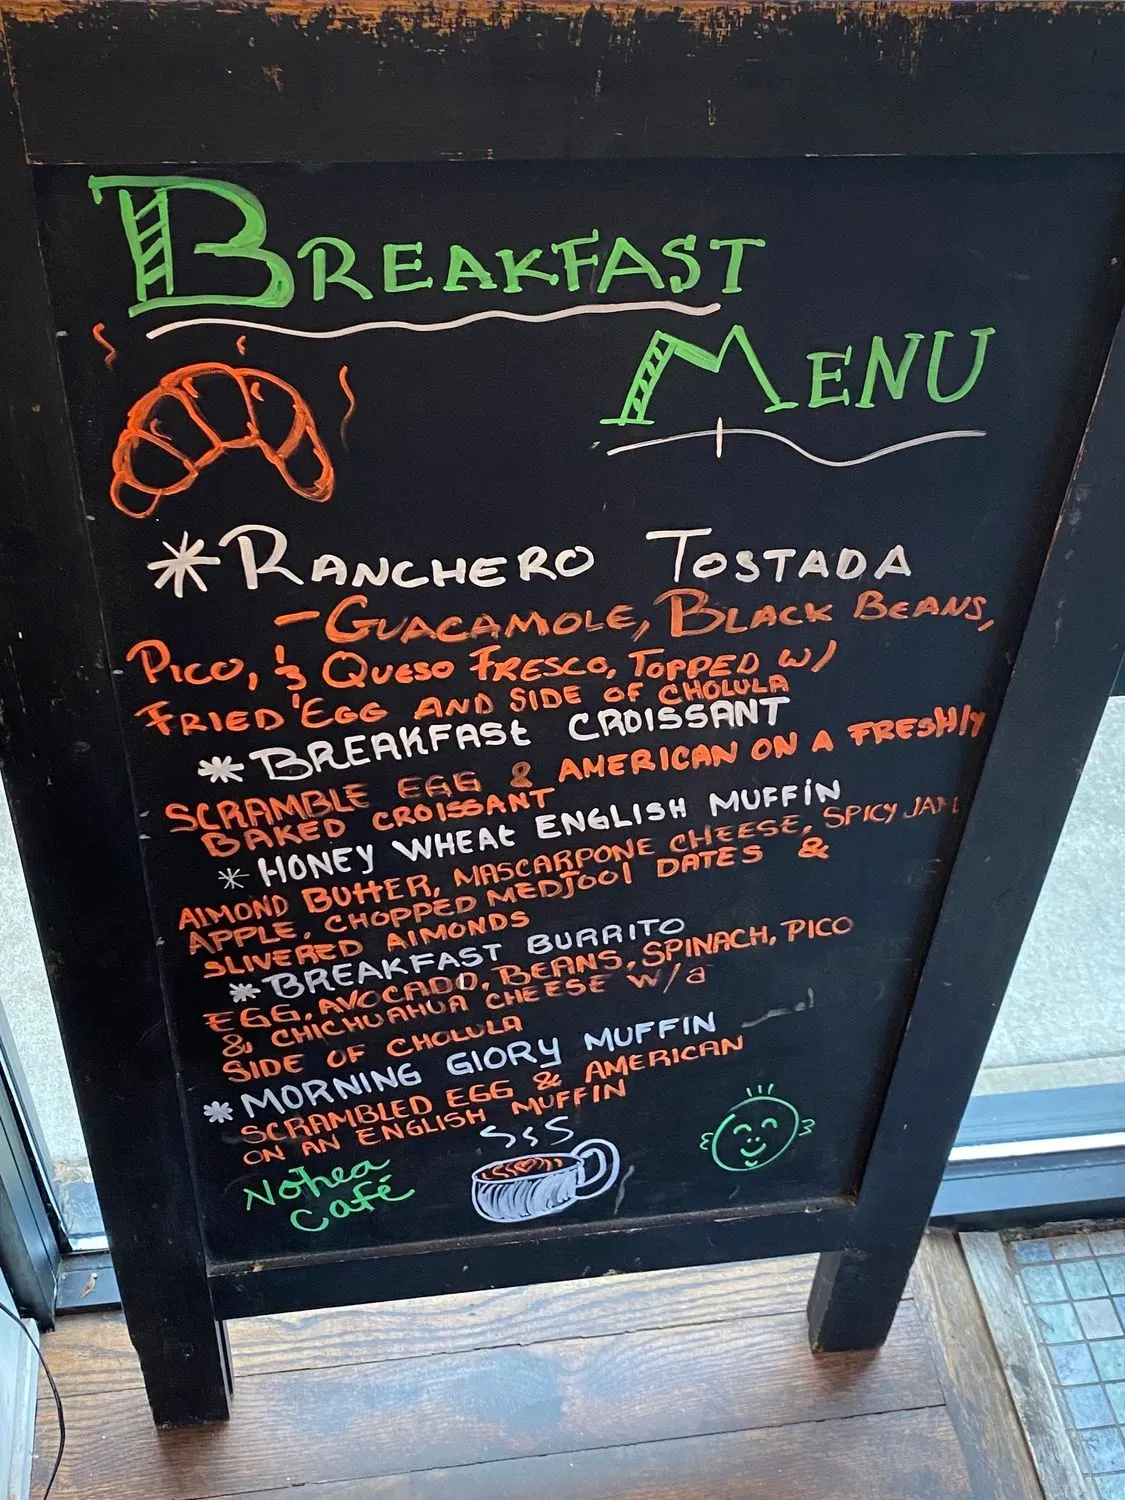 BREAKFAST
MENU
*RANCHERO TOSTADA
-GUACAMOLE, BLACK BEANS,
PICO, & QUESO FRESCO, TOPPED W/
FRIED EGG AND SIDE OF CHOLULA
*BREAKFAST CROISSANT
SCRAMBLE EGG & AMERICAN ON A FRESHLY
BAKED CROISSANT
*HONEY WHEAT ENGLISH MUFFIN
ALMOND BUTTER, MASCARPONE CHEESE, SPICY JAM
APPLE, CHOPPED MEDJOOL DATES &
SLIVERED ALMONDS
*BREAKFAST BURRITO
EGG, AVOCADO, BEANS, SPINACH, PICO
& CHICHUAHUA CHEESE W/a
SIDE OF CHOLULA
*MORNING GLORY MUFFIN
SCRAMBLED EGG & AMERICAN
ON AN ENGLISH MUFFIN
Nohea
Café